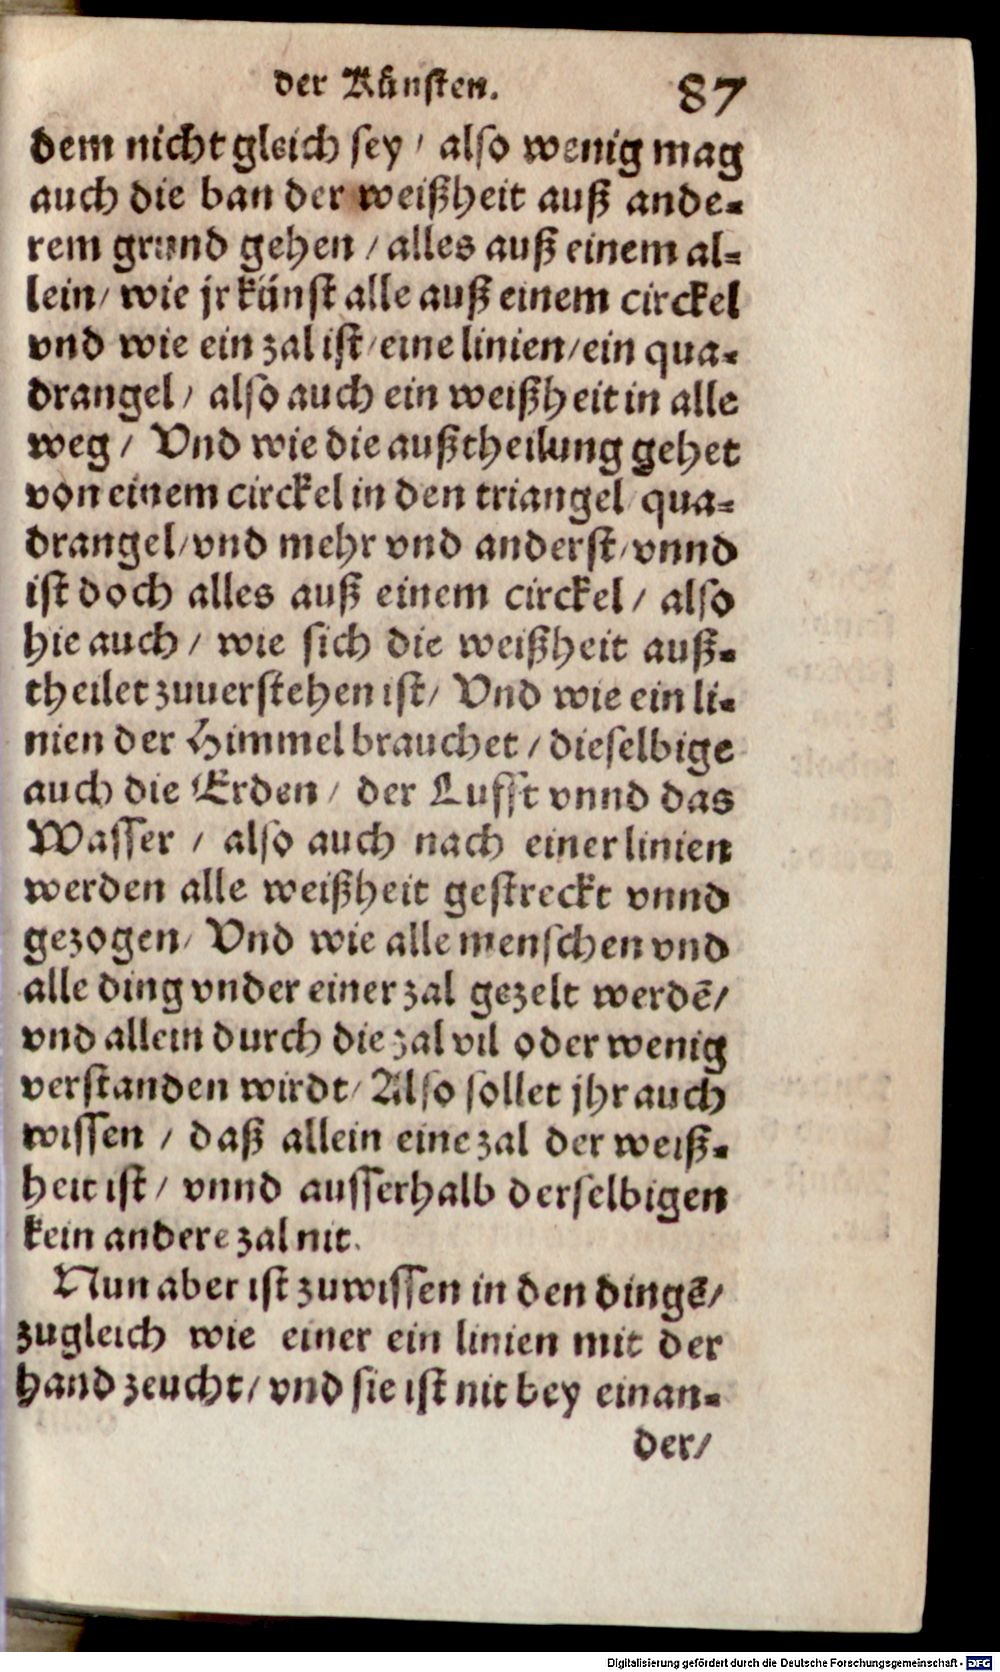 der Künsten. 87
dem nicht gleich sey / also wenig mag
auch die ban der weißheit auß ande-
rem grund gehen / alles auß einem al-
lein / wie jr künst alle auß einem circkel
vnd wie ein zal ist / eine linien / ein qua-
drangel / also auch ein weißheit in alle
weg / Vnd wie die außtheilung gehet
von einem circkel in den triangel / qua-
drangel / vnd mehr vnd anderst / vnnd
ist doch alles auß einem circkel / also
hie auch / wie sich die weißheit auß-
theilet zuuerstehen ist / Vnd wie ein li-
nien der Himmel brauchet / dieselbige
auch die Erden / der Lufft vnnd das
Wasser / also auch nach einer linien
werden alle weißheit gestreckt vnnd
gezogen / Vnd wie alle menschen vnd
alle ding vnder einer zal gezelt werdē /
vnd allein durch die zal vil oder wenig
verstanden wirdt / Also sollet jhr auch
wissen / daß allein eine zal der weiß-
heit ist / vnnd ausserhalb derselbigen
kein andere zal nit.
Nun aber ist zuwissen in den dingē /
zugleich wie einer ein linien mit der
hand zeucht / vnd sie ist nit bey einan-
der /
Digitalisierung gefördert durch die Deutsche Forschungsgemeinschaft - DFG